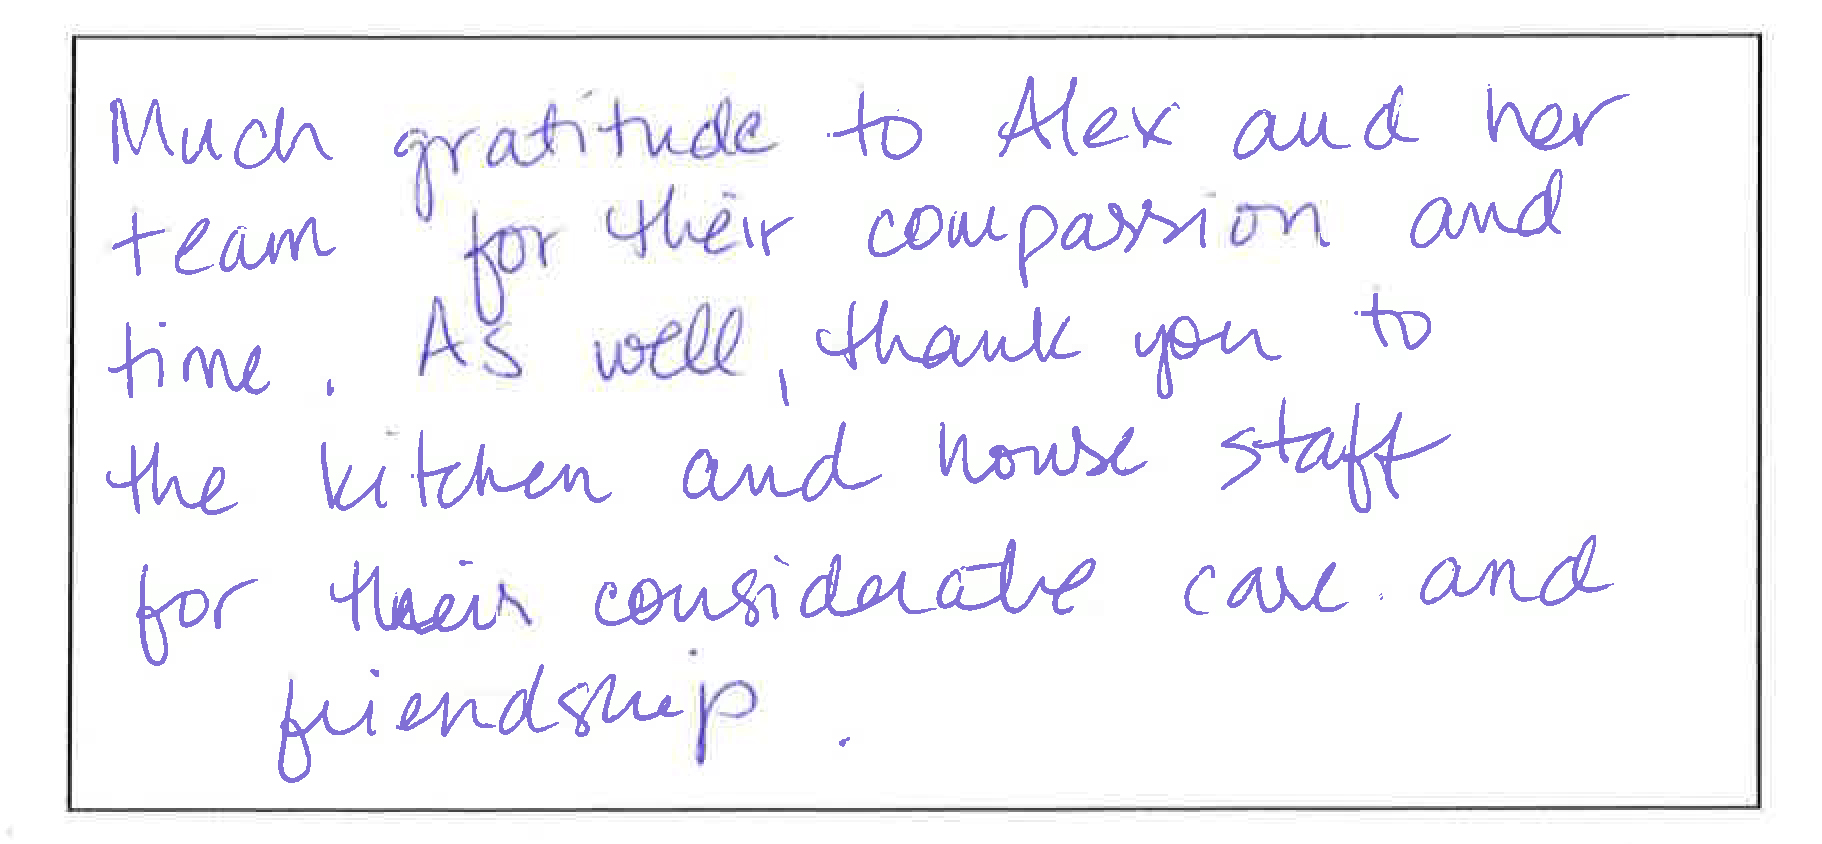 Much gratitude to Alex and her
team for their compassion and
time. As well, thank you to
the kitchen and house staff
for their considerate care and
friendship.